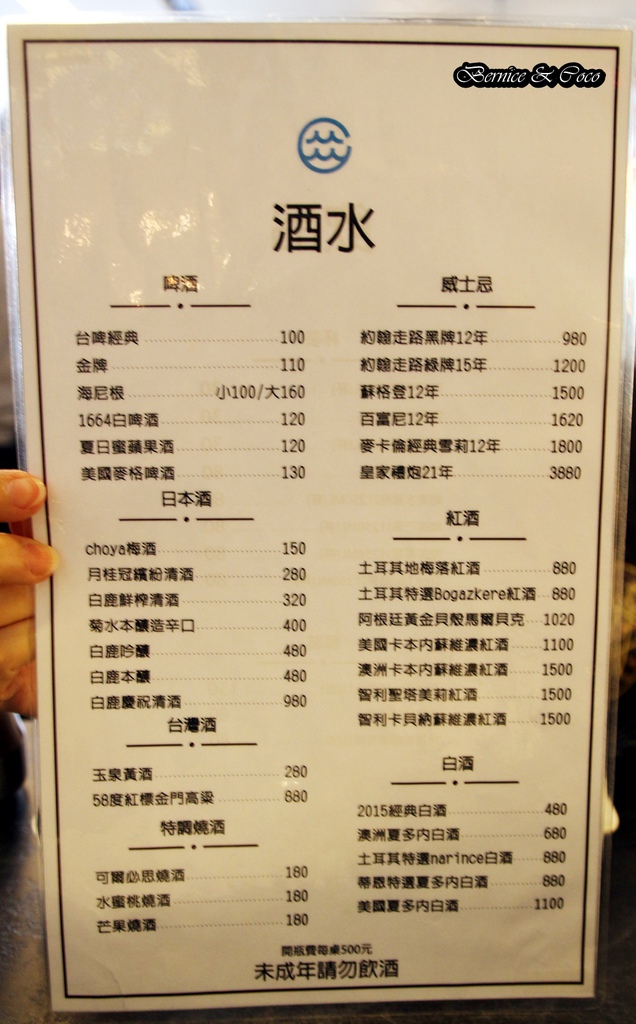 Bernice & Coco
酒水
啤酒
台啤經典 100
金牌 110
海尼根 小100/大160
1664白啤酒 120
夏日蜜蘋果酒 120
美國麥格啤酒 130
日本酒
choya梅酒 150
月桂冠繽紛清酒 280
白鹿鮮榨清酒 320
菊水本釀造辛口 400
白鹿吟釀 480
白鹿本釀 480
白鹿慶祝清酒 980
台灣酒
玉泉黃酒 280
58度紅標金門高粱 880
特調燒酒
可爾必思燒酒 180
水蜜桃燒酒 180
芒果燒酒 180
威士忌
約翰走路黑牌12年 980
約翰走路綠牌15年 1200
蘇格登12年 1500
百富尼12年 1620
麥卡倫經典雪莉12年 1800
皇家禮炮21年 3880
紅酒
土耳其地梅落紅酒 880
土耳其特選Bogazkere紅酒 880
阿根廷黃金貝殼馬爾貝克 1020
美國卡本內蘇維濃紅酒 1100
澳洲卡本內蘇維濃紅酒 1500
智利聖塔美莉紅酒 1500
智利卡貝納蘇維濃紅酒 1500
白酒
2015經典白酒 480
澳洲夏多內白酒 680
土耳其特選narince白酒 880
蒂恩特選夏多內白酒 880
美國夏多內白酒 1100
開瓶費每桌500元
未成年請勿飲酒